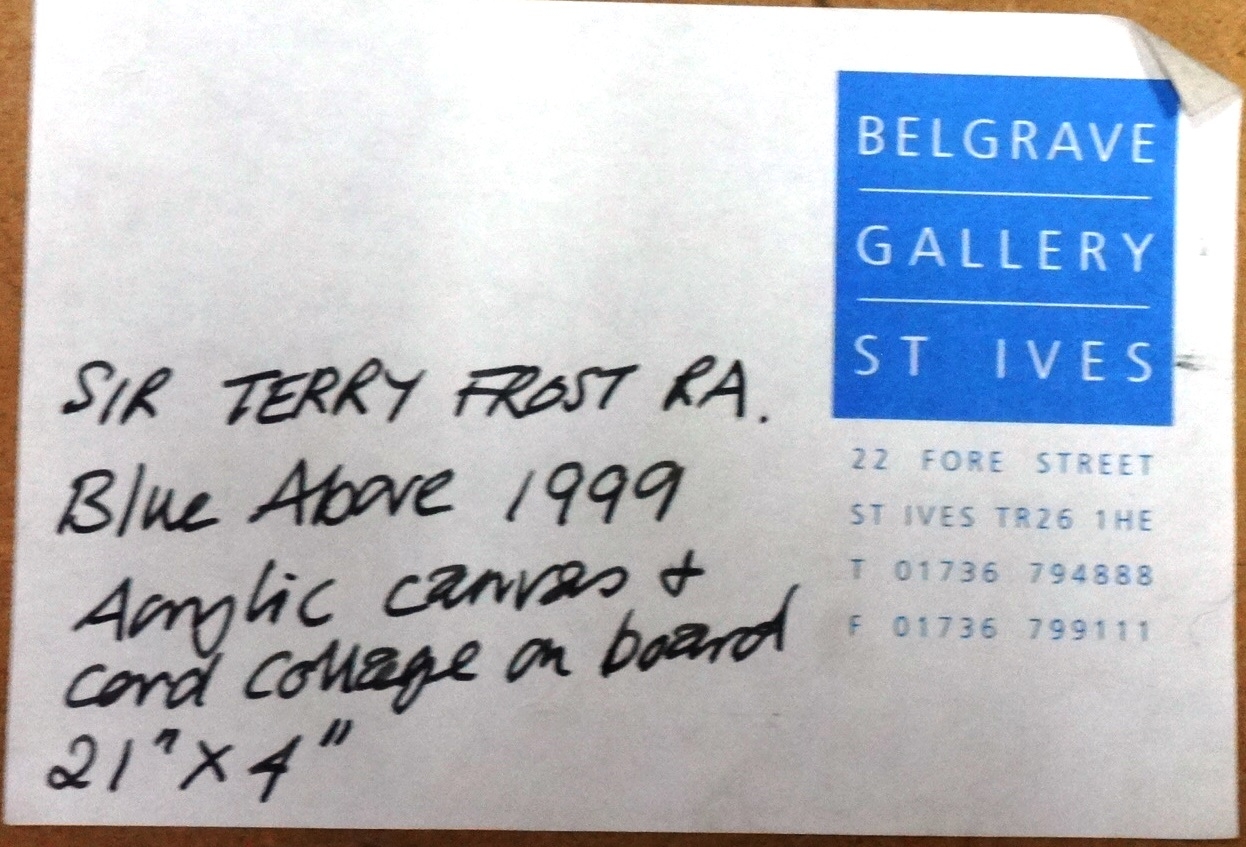 BELGRAVE
GALLERY
ST IVES
22 FORE STREET
ST IVES TR26 1HE
T 01736 794888
F 01736 799111
SIR TERRY FROST RA.
Blue Above 1999
Acrylic canvas +
card collage on board
21" X 4"